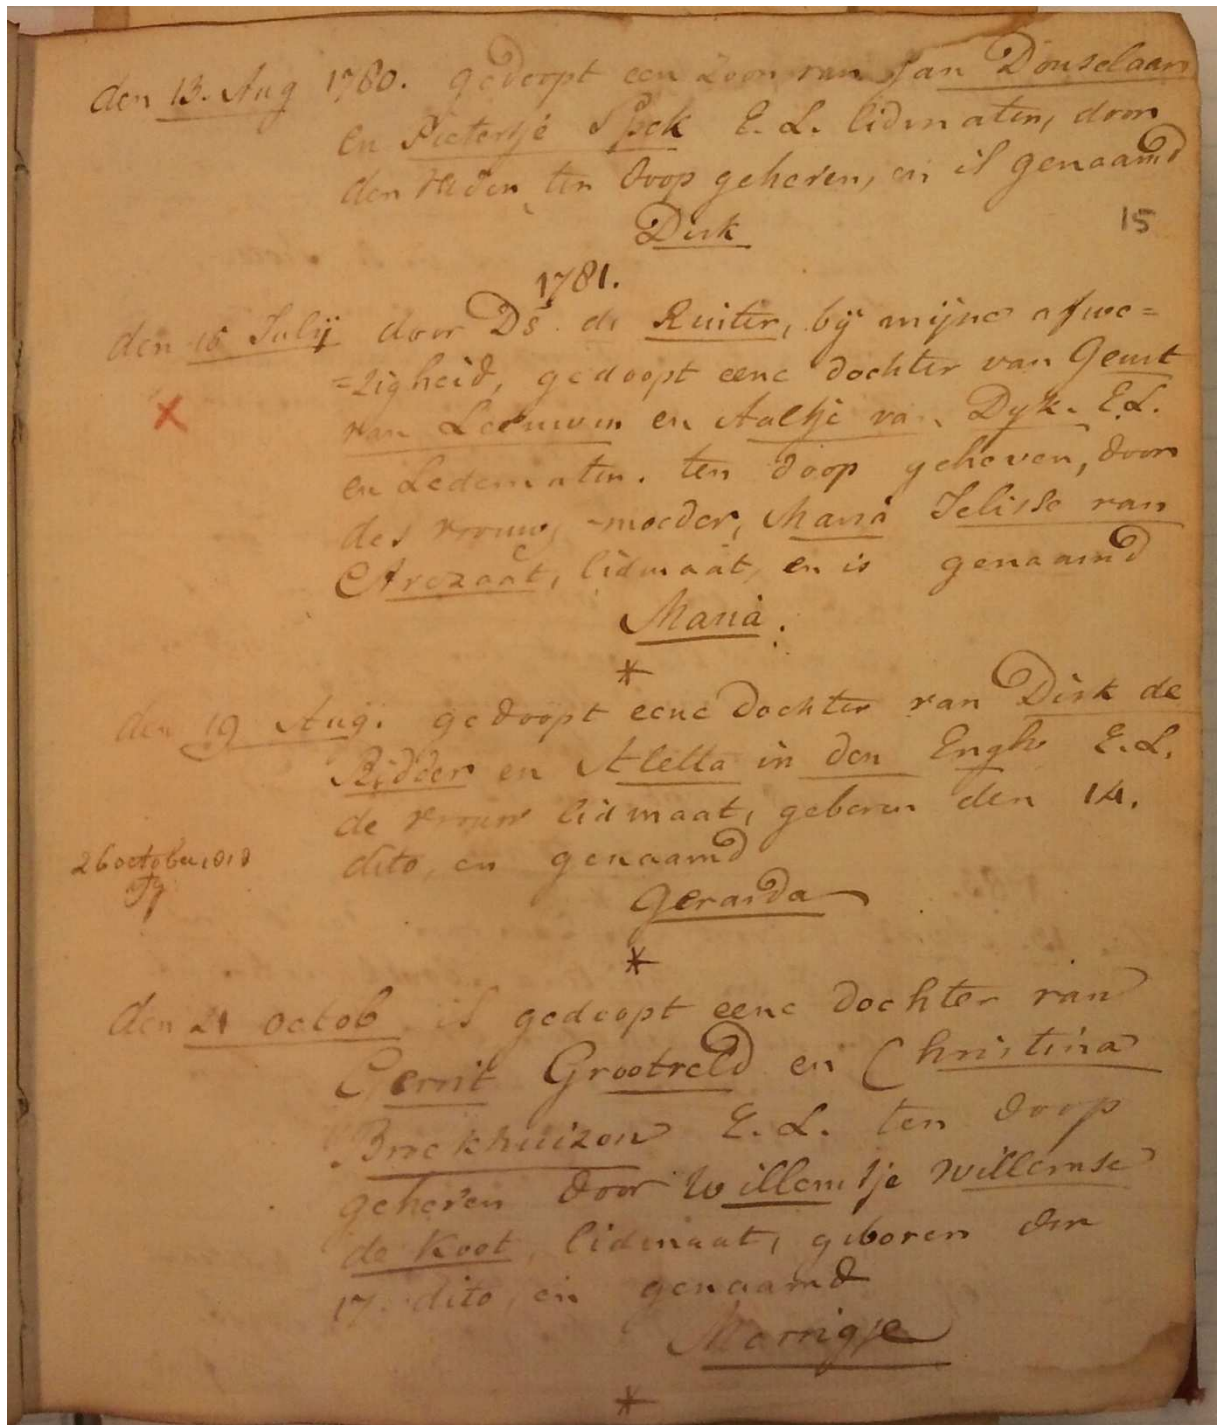 den 13. Aug 1780. gedoopt een Zoon van Jan Donselaar
en Pietertje Spek E. L. lidmaten, door
den Vader ten doop geheven, en is genaamd
Dirk
15
1781.
den 15 Julij door Ds. de Ruiter, bij mijne afwe=
=zigheid, gedoopt eene dochter van Geurt
van Leeuwen en Aaltje van Dyk. E.L.
en Ledematen. ten doop geheven, door
des vrouws moeder, Maria Jelisse van
Arezaat, lidmaat, en is genaamd
Maria.
den 19 Aug. gedoopt eene dochter van Dirk de
Ridder en Aletta in den Engh E.L.
de vrouw lidmaat, geboren den 14.
dito, en genaamd
26 october 1818
Gerarda
den 21 octob is gedoopt eene dochter van
Gerrit Grootveld en Christina
Broekhuizen E. L. ten doop
geheven door Willemtje Willemse
de Koot, lidmaat, geboren den
17. dito, en genaamd
Marrigje